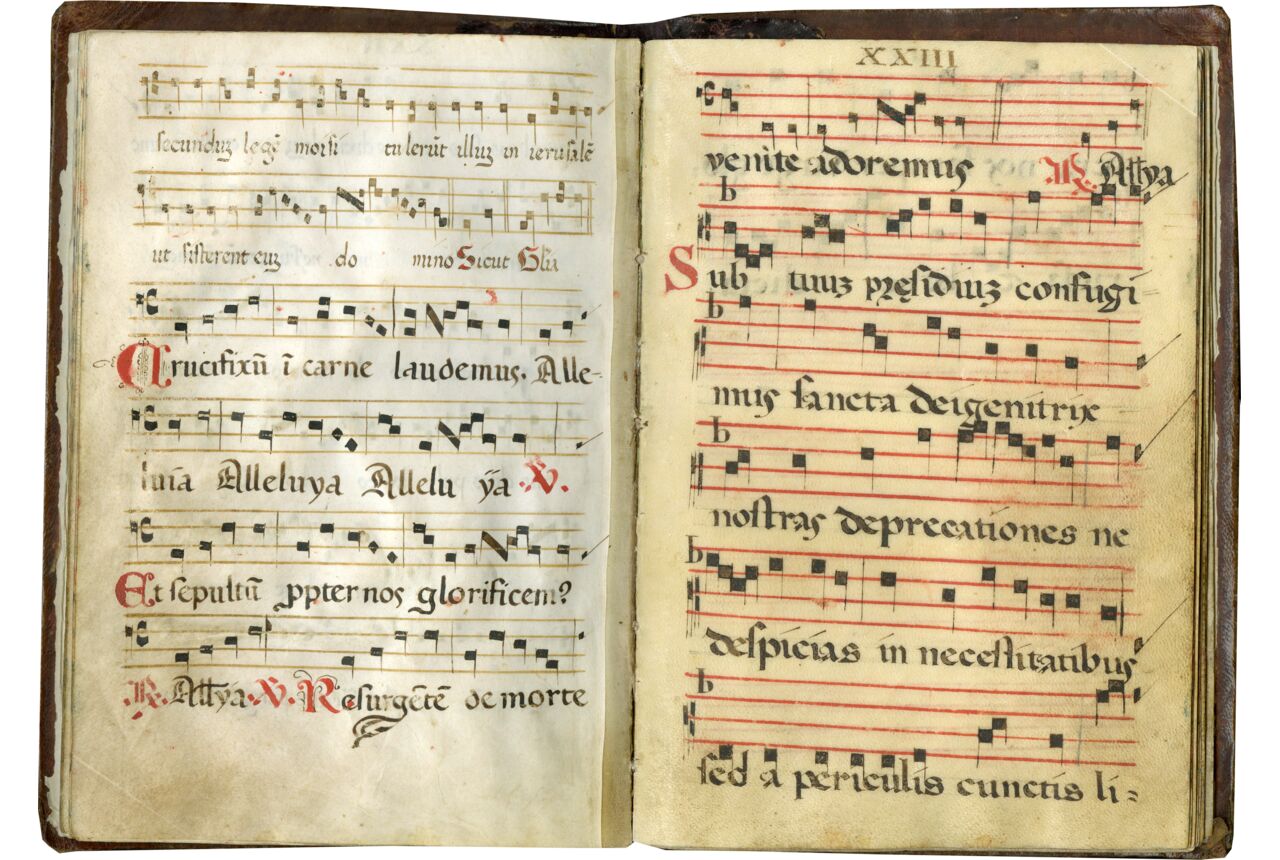 secunduʒ legē moisi tulerūt illuʒ in ierusalē
ut sisterent euʒ do mino Sicut Glīa
Crucifixū ī carne laudemus. Alle-
luīa Alleluya Allelu ya V.
Et sepultū ꝓpter nos glorificem?
R. Allya V. Resurgētē de morte
XXIII
venite adoremus R. Allya
Sub tuuʒ pręsidiuʒ confugi
mus sancta deigenitrix
nostras deprecationes ne
despicias in necessitatibus
sed a periculis cunctis li-